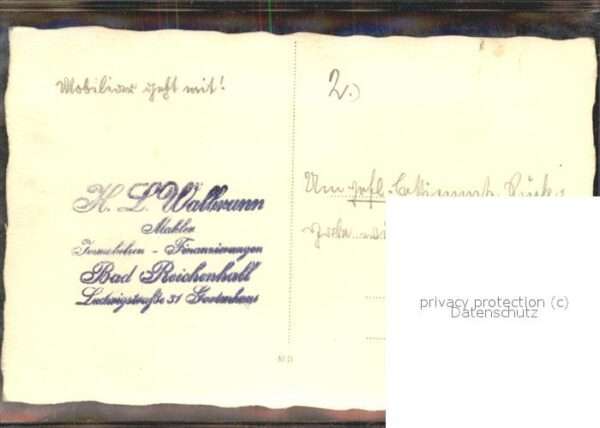 Mobiliar geht mit!
2.)
H. L. Wallmann
Makler
Immobilien - Finanzierungen
Bad Reichenhall
Ludwigstraße 31 Gartenhaus
Um gefl.
privacy protection (c)
Datenschutz